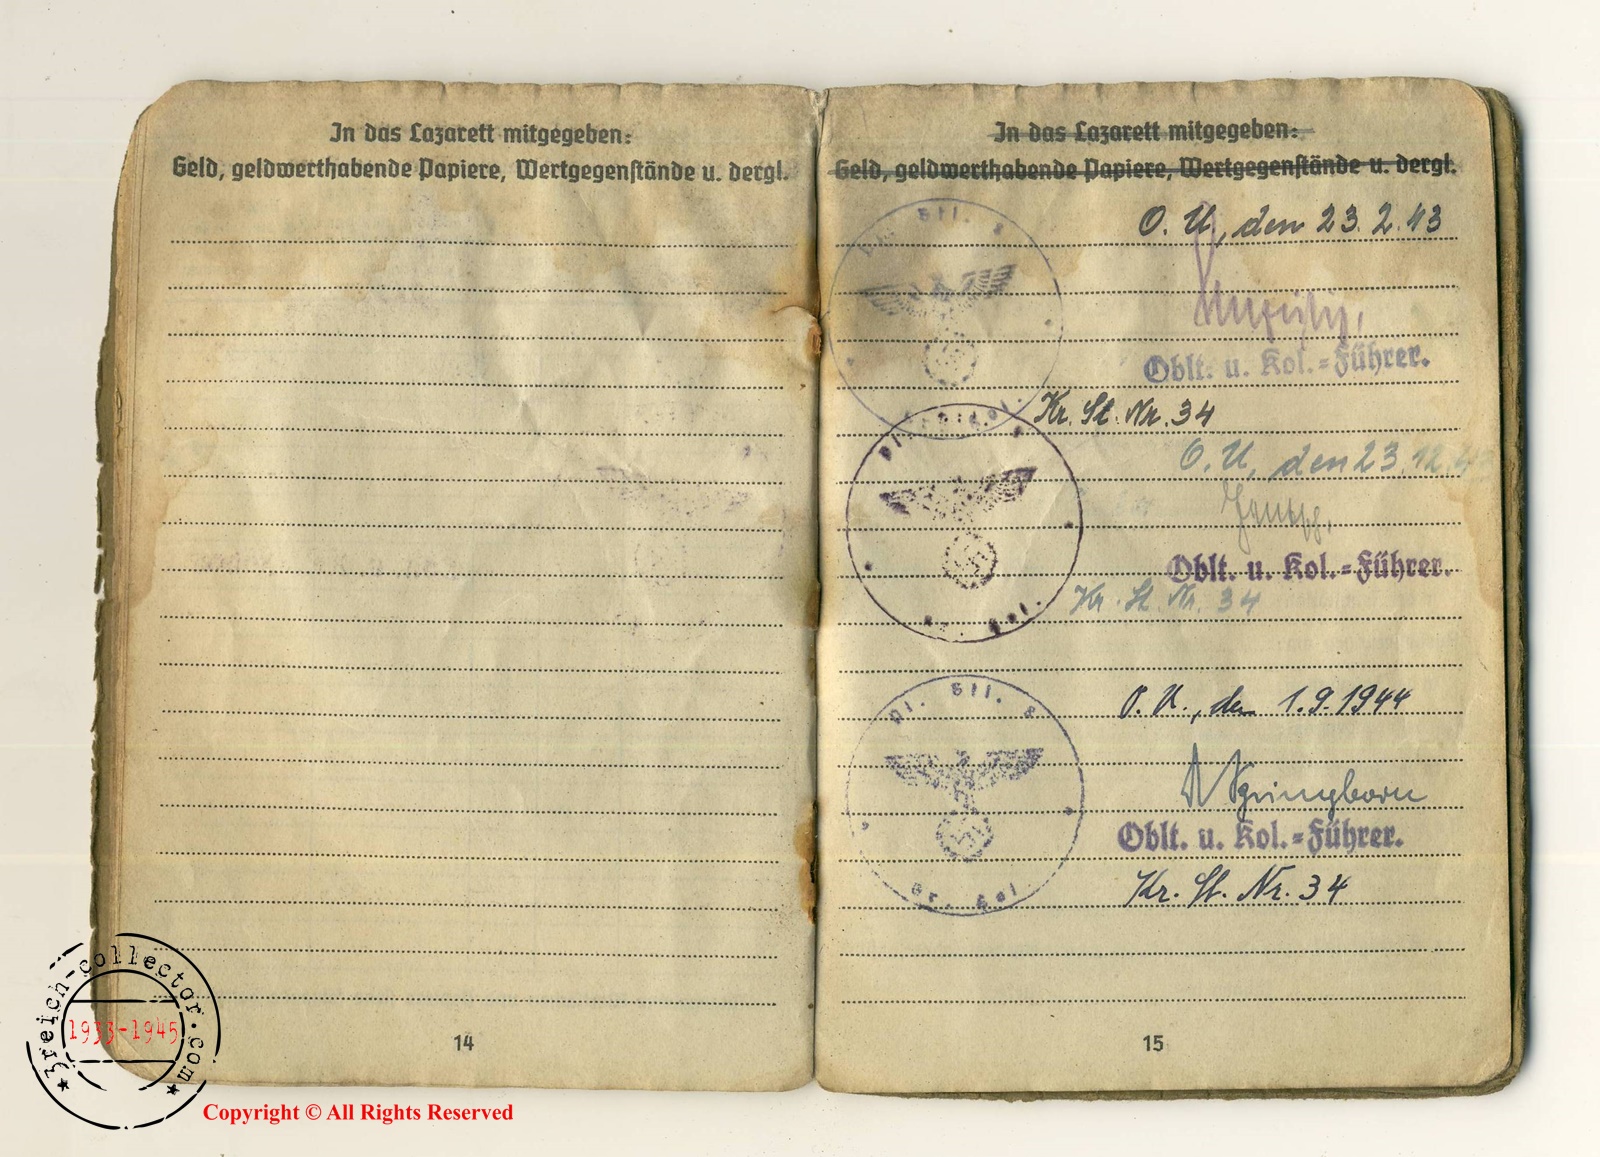 In das Lazarett mitgegeben:
Geld, geldwerthabende Papiere, Wertgegenstände u. dergl.
14
In das Lazarett mitgegeben:
Geld, geldwerthabende Papiere, Wertgegenstände u. dergl.
O. U., den 23. 2. 43
Oblt. u. Kol.=Führer.
Kr. St. Nr. 34
O. U., den 23. 12. 43
Oblt. u. Kol.=Führer.
Kr. St. Nr. 34
O. U., den 1.9.1944
Springborn
Oblt. u. Kol.=Führer.
Kr. St. Nr. 34
15
3reich-collector.com
1933-1945
Copyright © All Rights Reserved